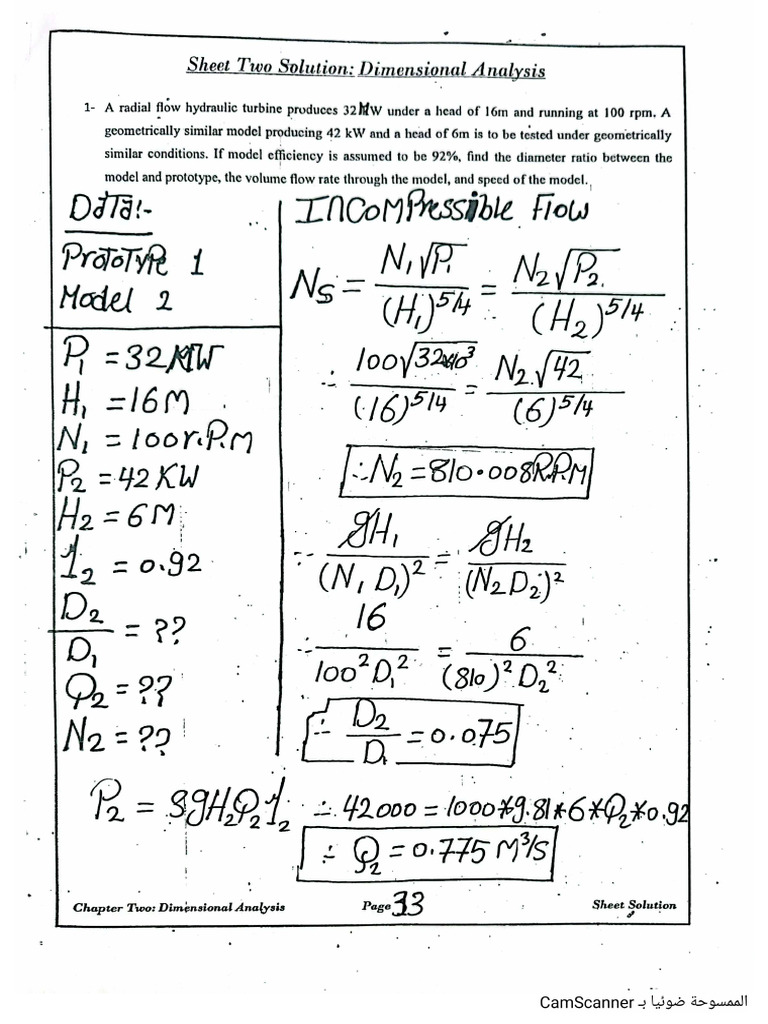 Sheet Two Solution: Dimensional Analysis
1- A radial flow hydraulic turbine produces 32MW under a head of 16m and running at 100 rpm. A
geometrically similar model producing 42 kW and a head of 6m is to be tested under geometrically
similar conditions. If model efficiency is assumed to be 92%, find the diameter ratio between the
model and prototype, the volume flow rate through the model, and speed of the model.
Data:-
Prototype 1
Model 2
P₁ = 32 MW
H₁ = 16 M
N₁ = 100 r.P.M
P₂ = 42 KW
H₂ = 6 M
η₂ = 0.92
D₂/D₁ = ??
Q₂ = ??
N₂ = ??
InCompressible Flow
Ns = N₁√P₁/(H₁)^5/4 = N₂√P₂/(H₂)^5/4
∴ 100√32*10³/(16)^5/4 = N₂√42/(6)^5/4
∴ N₂ = 810.008 R.P.M
∵ gH₁/(N₁D₁)² = gH₂/(N₂D₂)²
∴ 16/100²D₁² = 6/(810)²D₂²
∴ D₂/D₁ = 0.075
P₂ = ρgH₂Q₂η₂ ∴ 42000 = 1000*9.81*6*Q₂*0.92
∴ Q₂ = 0.775 M³/S
Chapter Two: Dimensional Analysis Page 33 Sheet Solution
الممسوحة ضوئيا بـ CamScanner